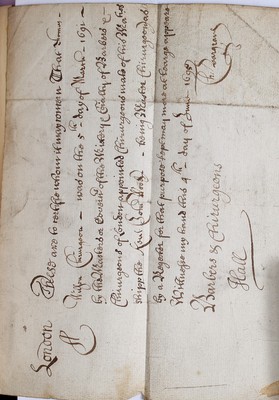 London
These are to certifie whom it may concern That
Chirurgeon was on the 5th day of March 169
by the Masters or Governors of the Mistery & Comlty of Barbers &
Chirurgeons of London appointed Chirurgeons mate of his Maties
Shipp the being Master Chirurgeon as
by a Register for that purpose kept may more at large appear
Witness my hand this 4th day of June 1698
Barbers & Chirurgeons
Hall